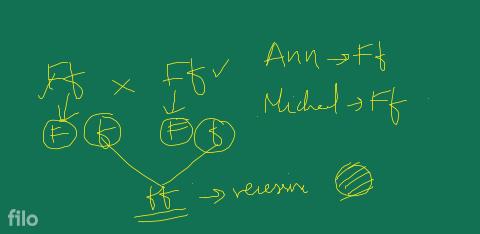 Ff × Ff ✓
Ann → Ff
Michael → Ff
F f F f
ff → recessive
filo